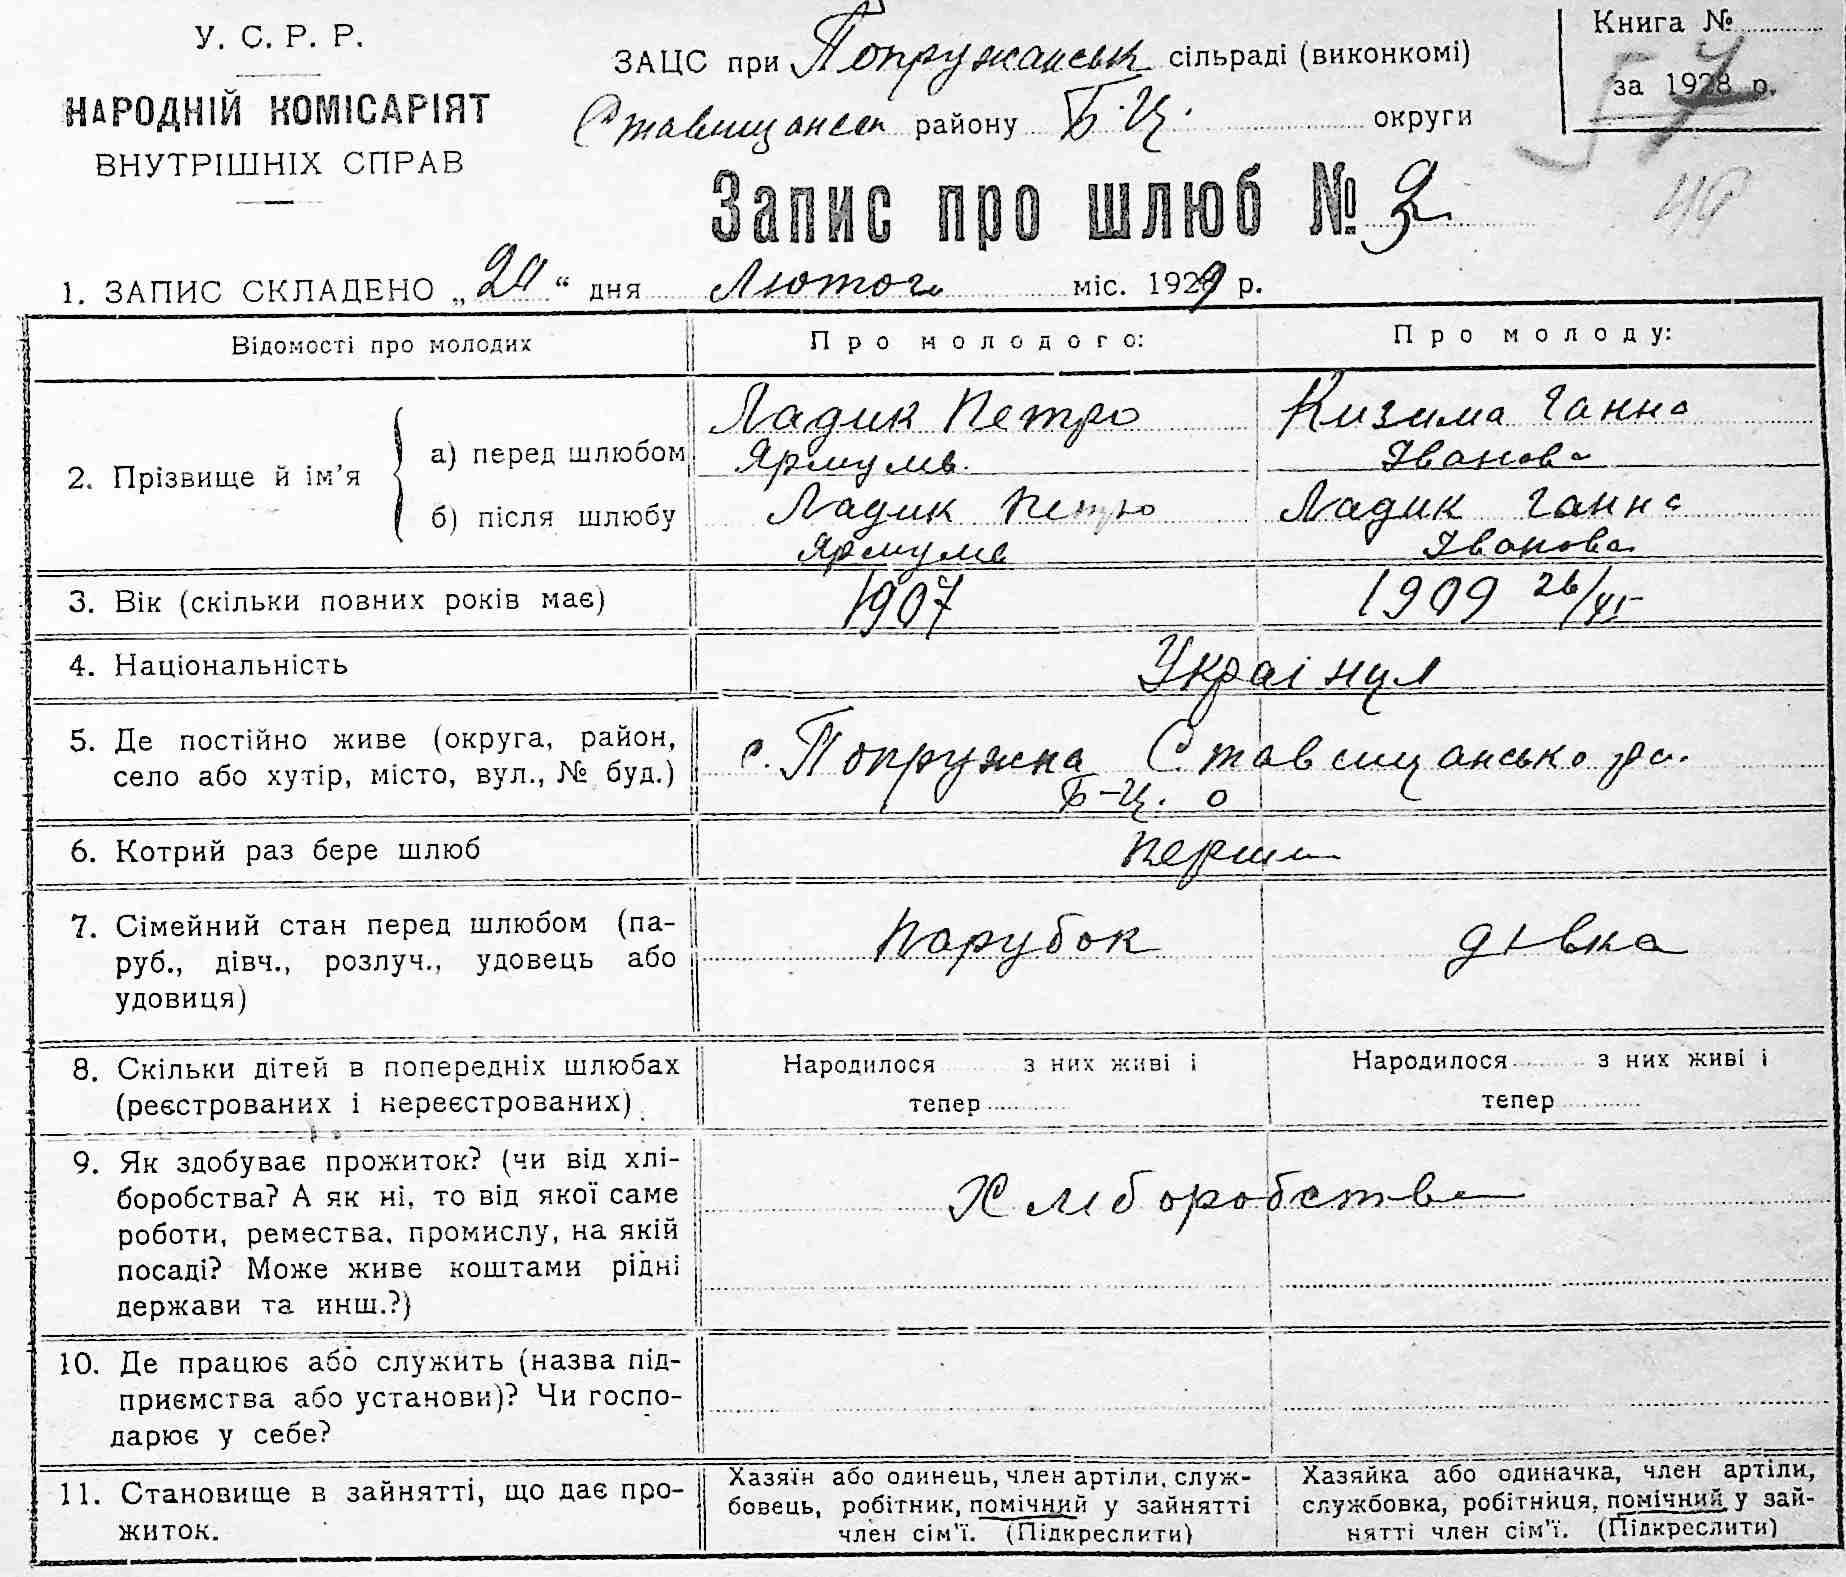 У. С. Р. Р.
НАРОДНІЙ КОМІСАРІЯТ
ВНУТРІШНІХ СПРАВ
ЗАЦС при Попружанськ сільраді (виконкомі)
Ставищанськ району Б.Ц. округи
Книга №
за 1928 р.
57
Запис про шлюб № 2
1. ЗАПИС СКЛАДЕНО „ “ дня Лютого міс. 1929 р.
Відомості про молодих
Про молодого:
Про молоду:
2. Прізвище й ім’я
а) перед шлюбом
Ладик Петро
Кизима Ганна
Іванова
б) після шлюбу
Ладик Петро
Ладик Ганна
Іванова
3. Вік (скільки повних років має)
1907
1909 26/VI
4. Національність
Українці
5. Де постійно живе (округа, район,
село або хутір, місто, вул., № буд.)
с. Попружна Ставищансько ра.
Б-Ц. о
6. Котрий раз бере шлюб
перши
7. Сімейний стан перед шлюбом (па-
руб., дівч., розлуч., удовець або
удовиця)
парубок
дівка
8. Скільки дітей в попередніх шлюбах
(реєстрованих і нереєстрованих)
Народилося з них живі і
тепер
Народилося з них живі і
тепер
9. Як здобуває прожиток? (чи від хлі-
боробства? А як ні, то від якої саме
роботи, ремества, промислу, на якій
посаді? Може живе коштами рідні
держави та инш.?)
Хліборобства
10. Де працює або служить (назва під-
приємства або установи)? Чи госпо-
дарює у себе?
11. Становище в зайнятті, що дає про-
житок.
Хазяїн або одинець, член артіли, служ-
бовець, робітник, помічний у зайнятті
член сім’ї. (Підкреслити)
Хазяйка або одиначка, член артіли,
службовка, робітниця, помічний у зай-
нятті член сім’ї. (Підкреслити)